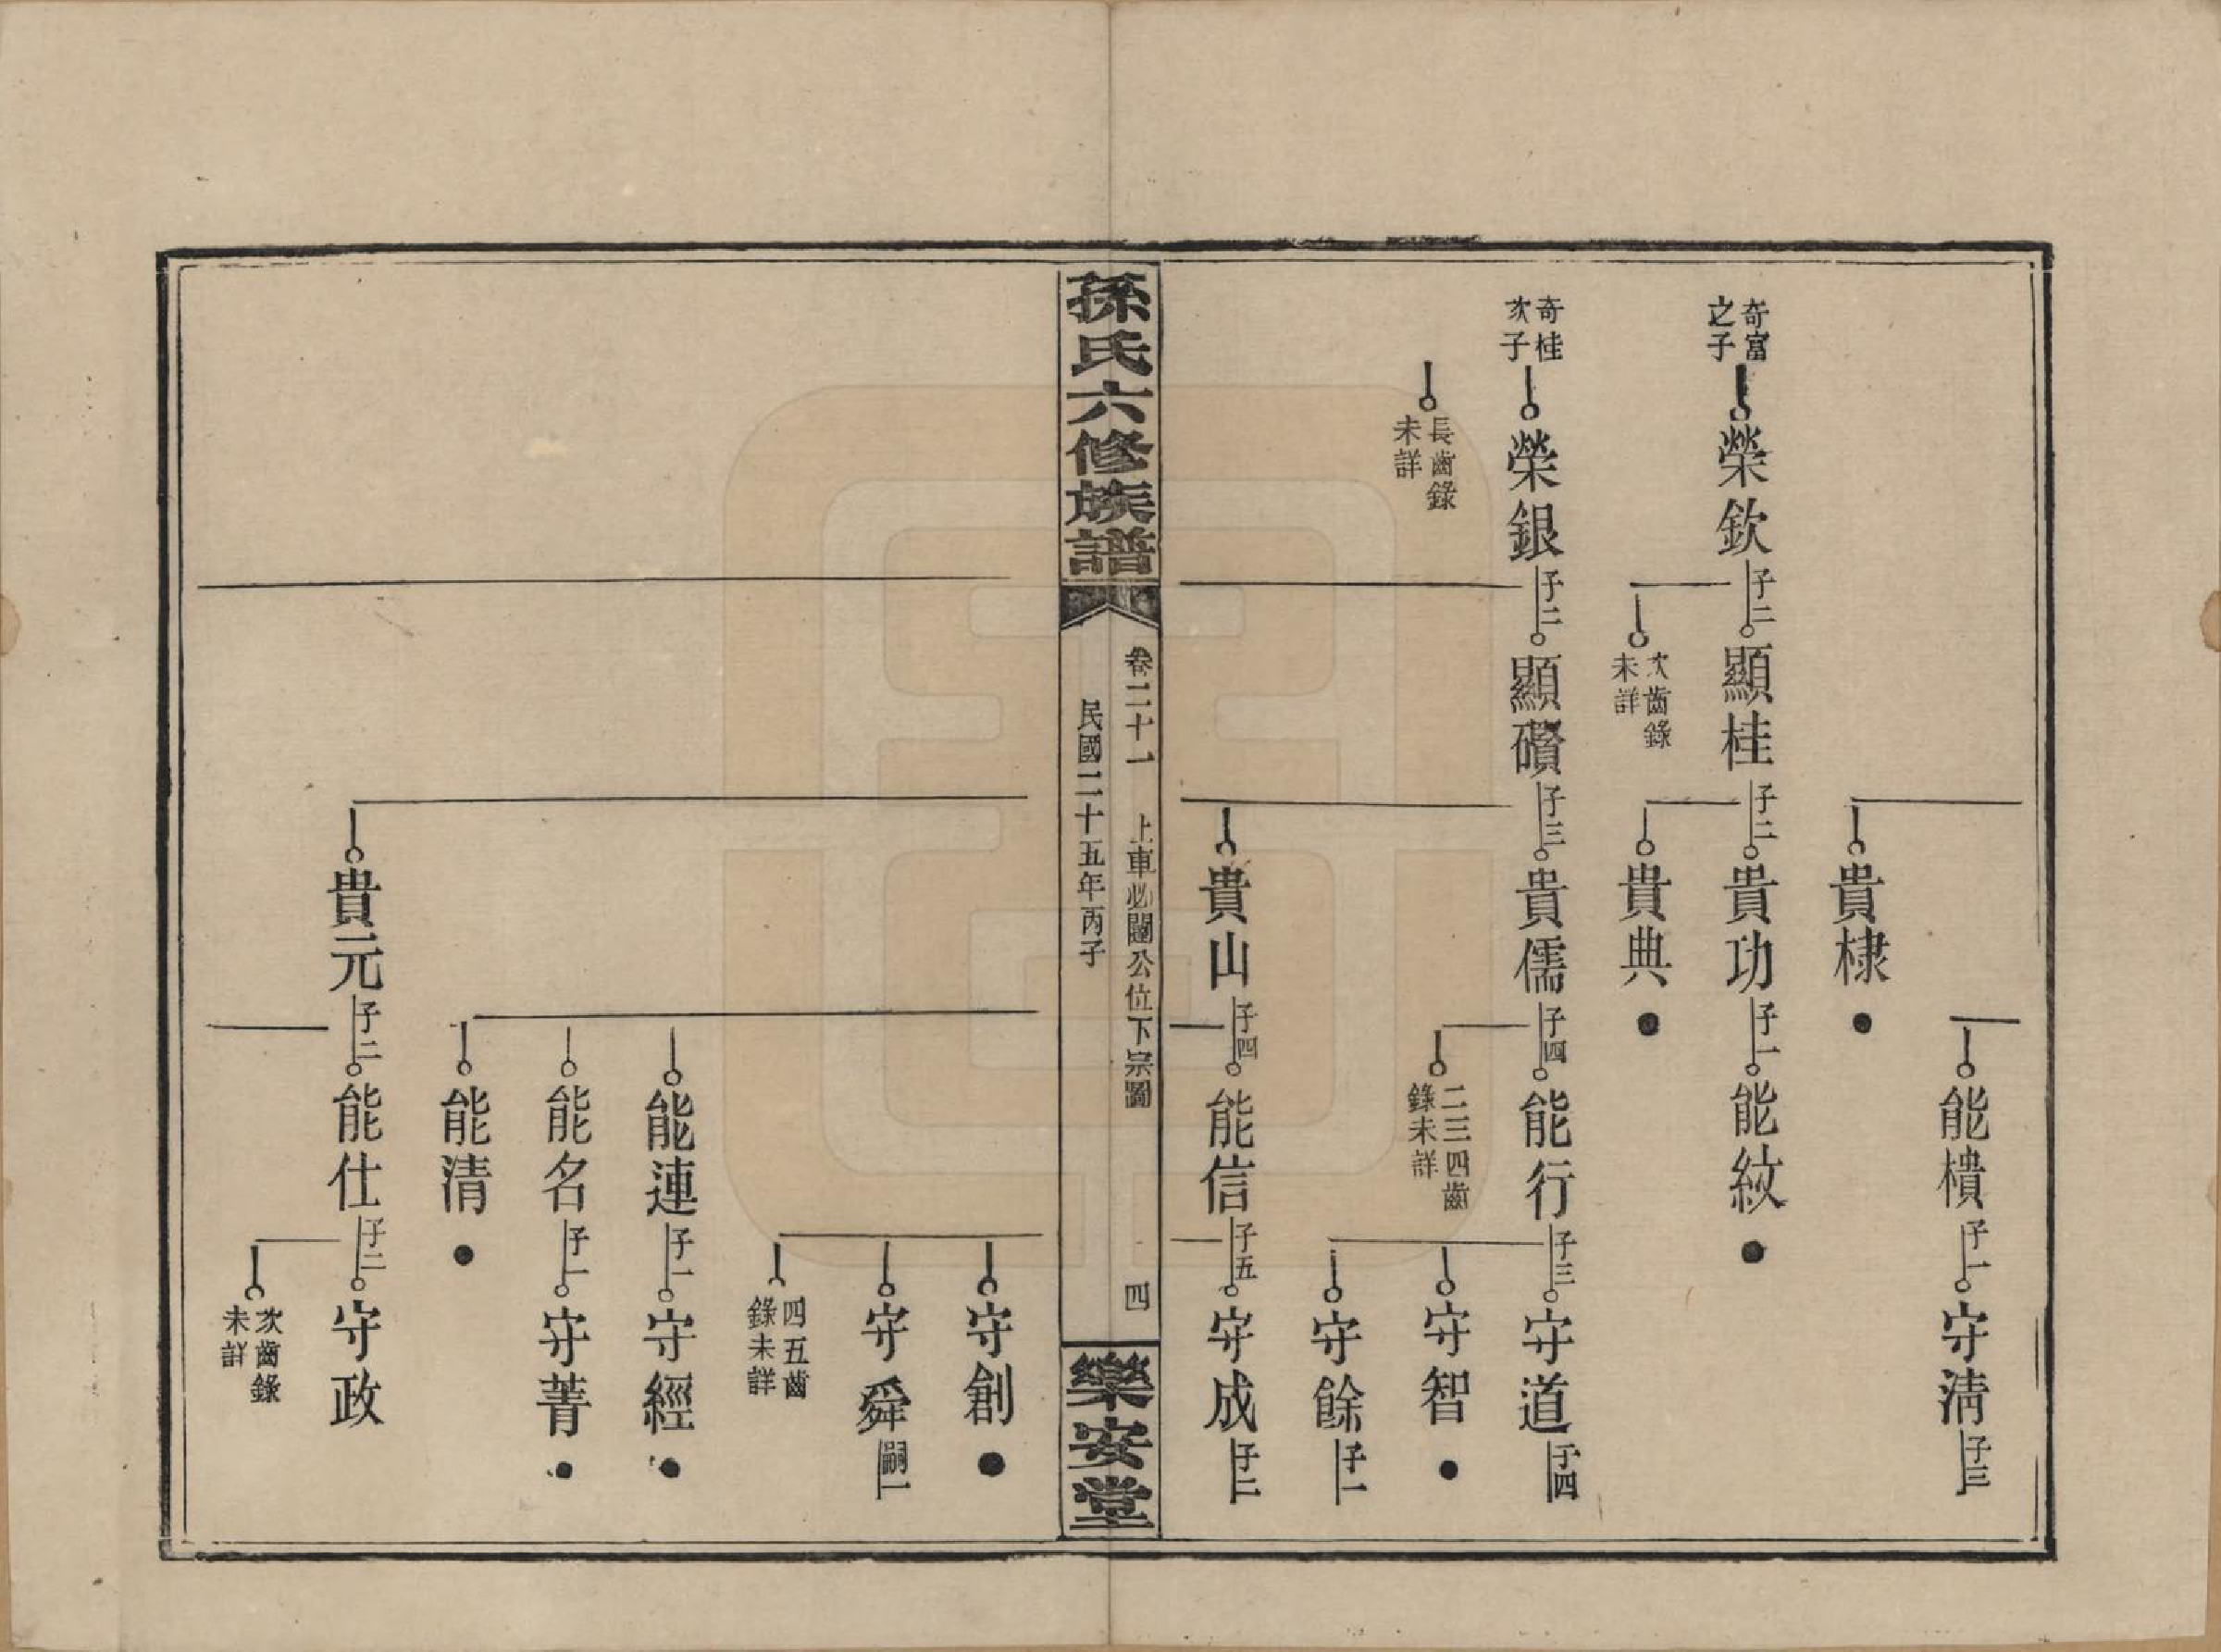 能樻子一守淸子三
貴棣
奇富之子
榮欽子二顯桂子二貴功子一能紋
貴典
次齒錄未詳
奇桂次子
榮銀子二顯礥子三貴儒子四能行子三守道子四
守智
守餘子一
二三四齒錄未詳
長齒錄未詳
貴山子四能信子五守成子二
孫氏六修族譜
卷二十一
上車必闓公位下宗圖
四
民國二十五年丙子
樂安堂
守創
守舜嗣一
四五齒錄未詳
能連子一守經
能名子一守菁
能清
貴元子二能仕子二守政
次齒錄未詳